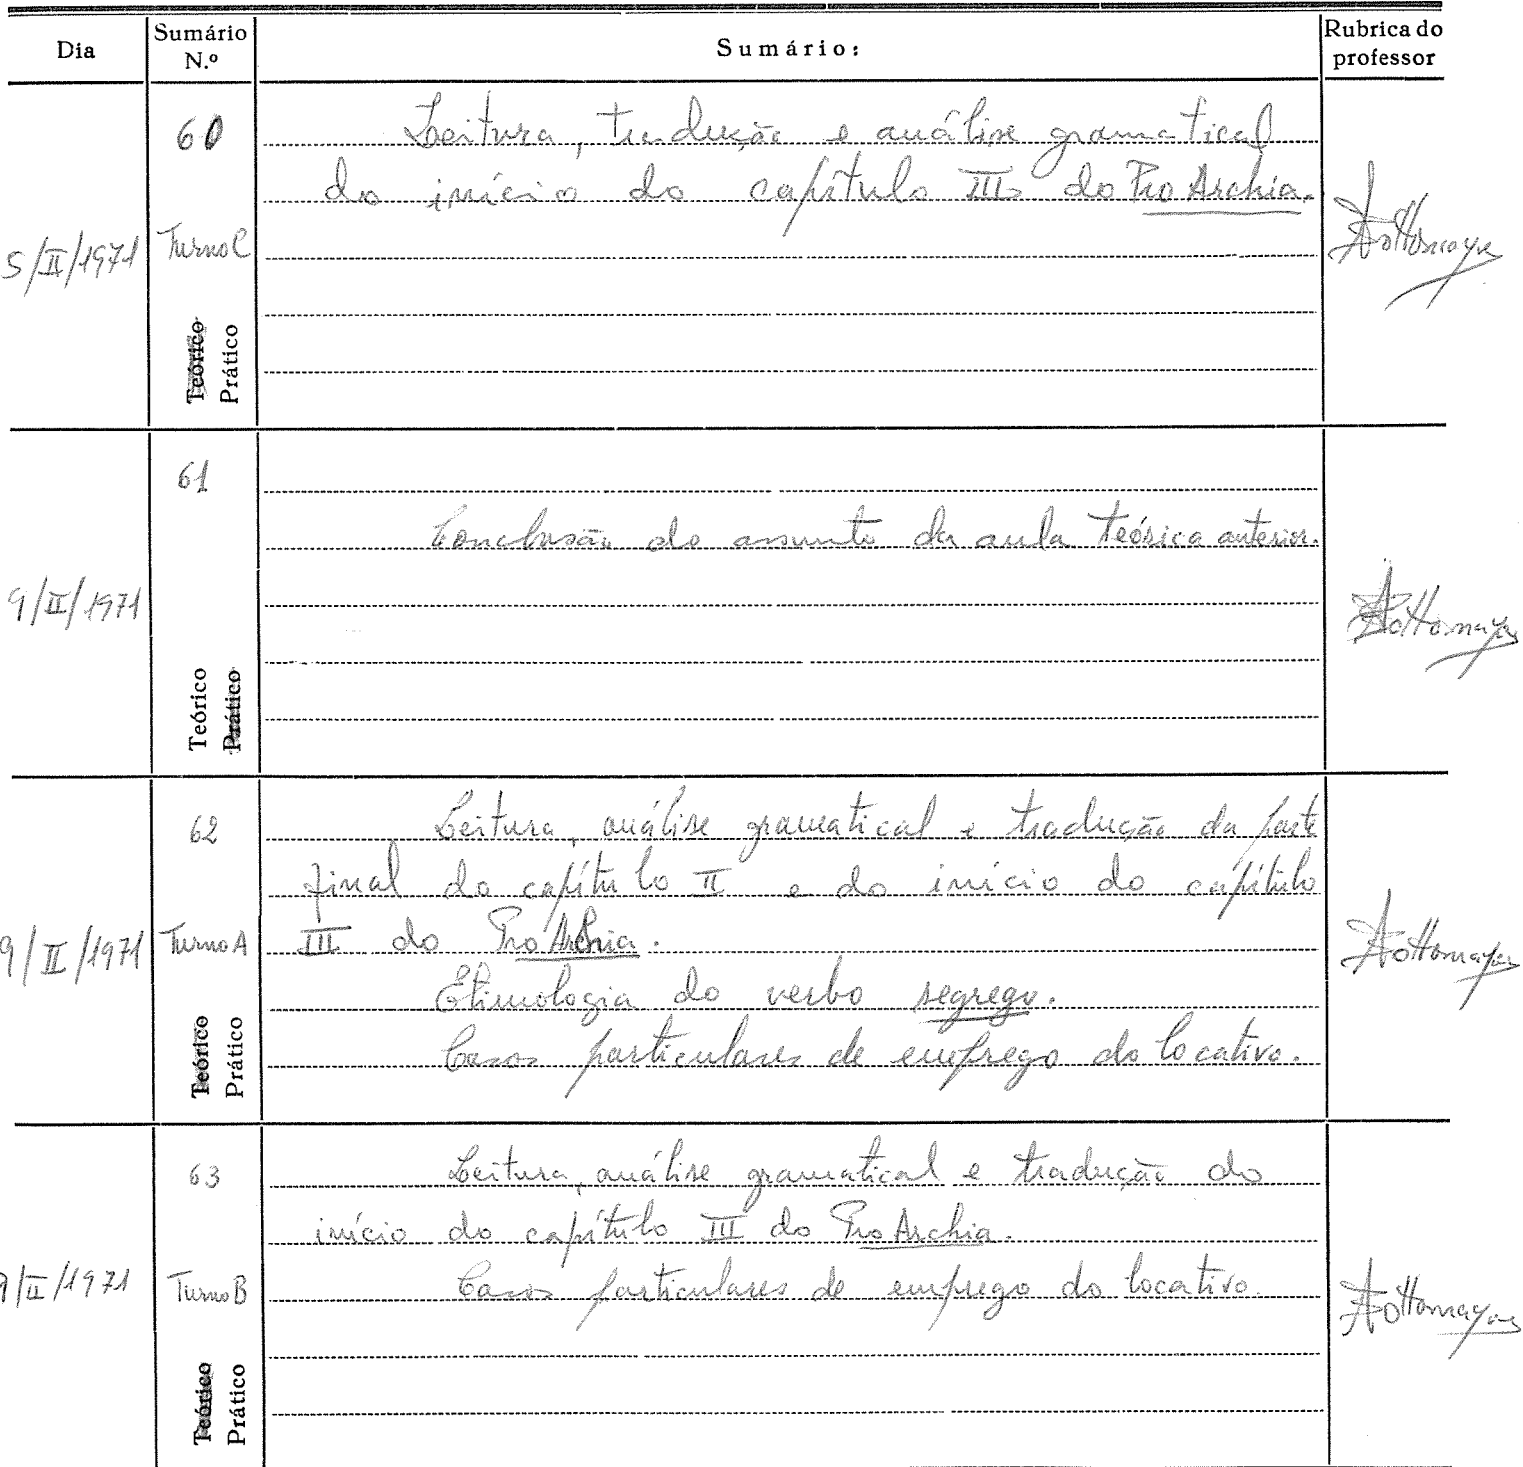 Dia
Sumário N.º
Sumário:
Rubrica do professor
5/II/1971
60
Turno C
Teórico
Prático
Leitura, tradução e análise gramatical
do início do capítulo III do Pro Archia.
9/II/1971
61
Teórico
Prático
Conclusão do assunto da aula teórica anterior.
9/II/1971
62
Turno A
Teórico
Prático
Leitura, análise gramatical e tradução da parte
final do capítulo II e do início do capítulo
III do Pro Archia.
Etimologia do verbo segrego.
Casos particulares de emprego do locativo.
9/II/1971
63
Turno B
Teórico
Prático
Leitura, análise gramatical e tradução do
início do capítulo III do Pro Archia.
Casos particulares de emprego do locativo.